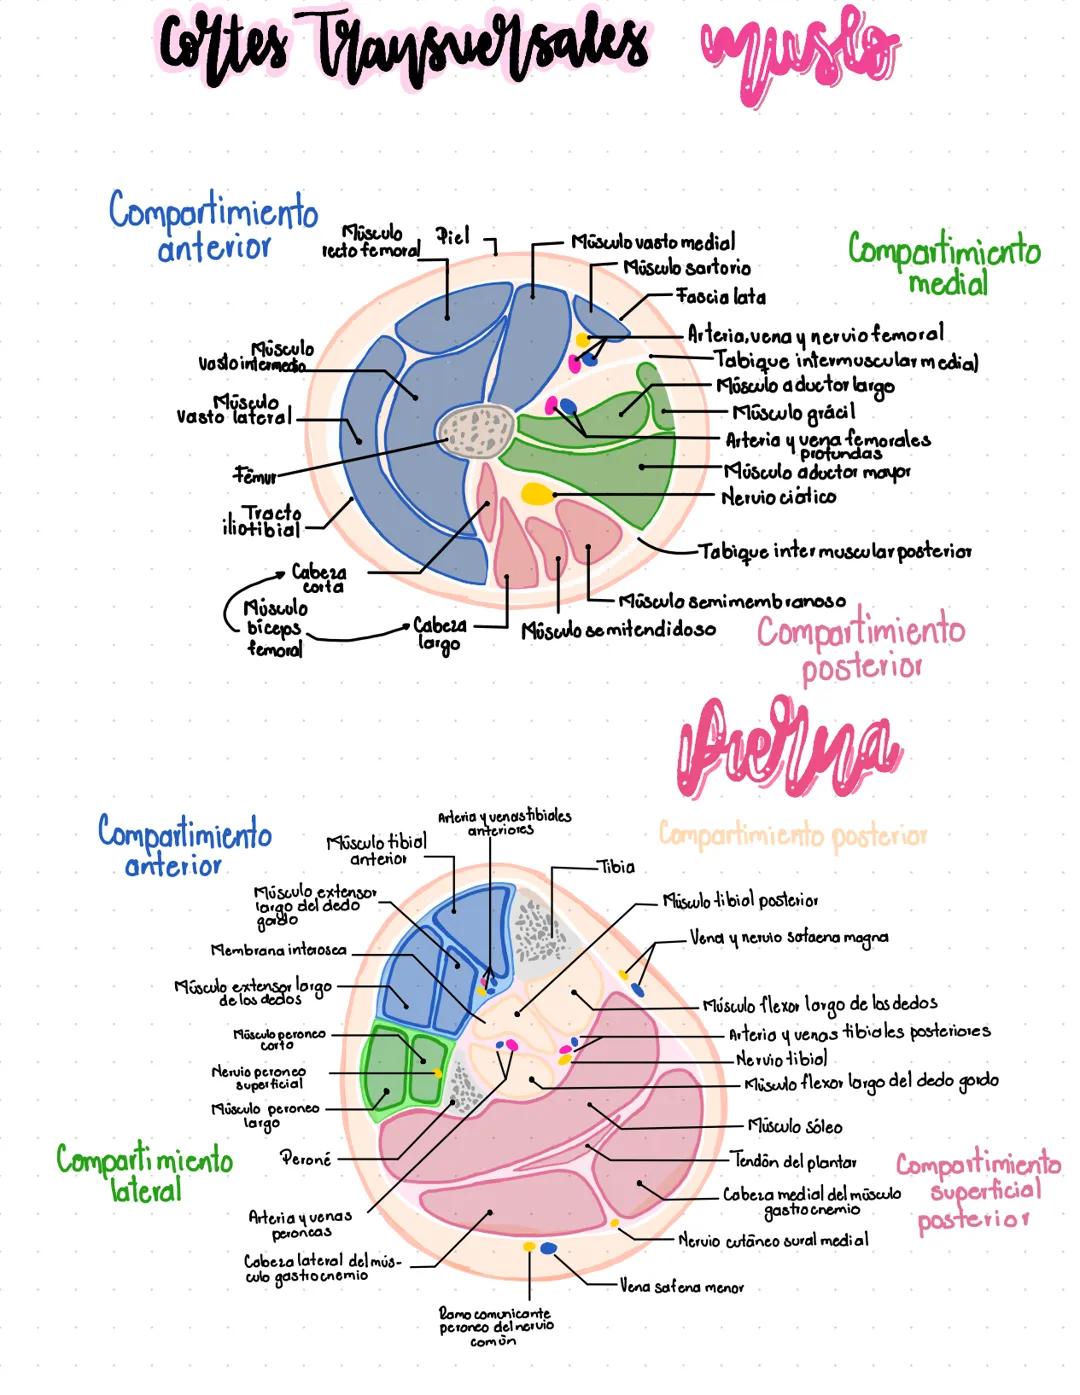 Cortes Transversales muslo
Compartimiento
anterior
Músculo
recto femoral
Piel
Músculo vasto medial
Músculo sartorio
Fascia lata
Compartimiento
medial
Arteria, vena y nervio femoral
Tabique intermuscular medial
Músculo aductor largo
Músculo grácil
Arteria y vena femorales
profundas
Músculo aductor mayor
Nervio ciático
Tabique intermuscular posterior
Músculo
vasto intermedio
Músculo
vasto lateral
Fémur
Tracto
iliotibial
Cabeza
corta
Músculo
bíceps
femoral
Cabeza
largo
Músculo semimembranoso
Músculo semitendidoso
Compartimiento
posterior
Pierna
Compartimiento
anterior
Arteria y venas tibiales
anteriores
Músculo tibial
anterior
Compartimiento posterior
Tibia
Músculo extensor
largo del dedo
gordo
Músculo tibial posterior
Membrana interosea
Vena y nervio safaena magna
Músculo extensor largo
de los dedos
Músculo flexor largo de los dedos
Músculo peroneo
corto
Arteria y venas tibiales posteriores
Nervio tibial
Nervio peroneo
superficial
Músculo flexor largo del dedo gordo
Músculo peroneo
largo
Músculo sóleo
Compartimiento
lateral
Peroné
Tendón del plantar
Compartimiento
superficial
posterior
Cabeza medial del músculo
gastrocnemio
Arteria y venas
peroneas
Nervio cutáneo sural medial
Cabeza lateral del mús-
culo gastrocnemio
Vena safena menor
Ramo comunicante
peroneo del nervio
común